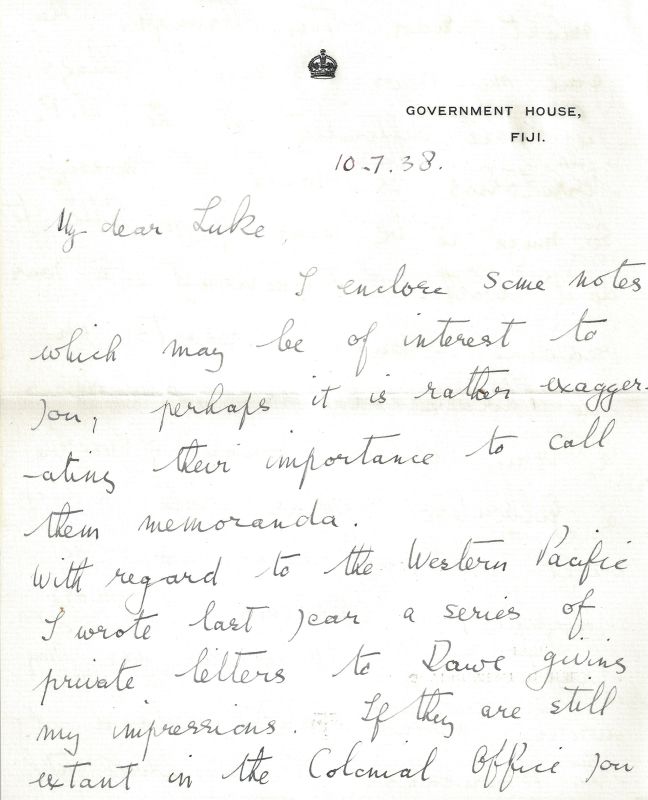 GOVERNMENT HOUSE,
FIJI.
10.7.38.
My dear Luke,
I enclose some notes
which may be of interest to
you, perhaps it is rather exagger-
-ating their importance to call
them memoranda.
With regard to the Western Pacific
I wrote last year a series of
private letters to Dawe giving
my impressions. If they are still
extant in the Colonial Office you